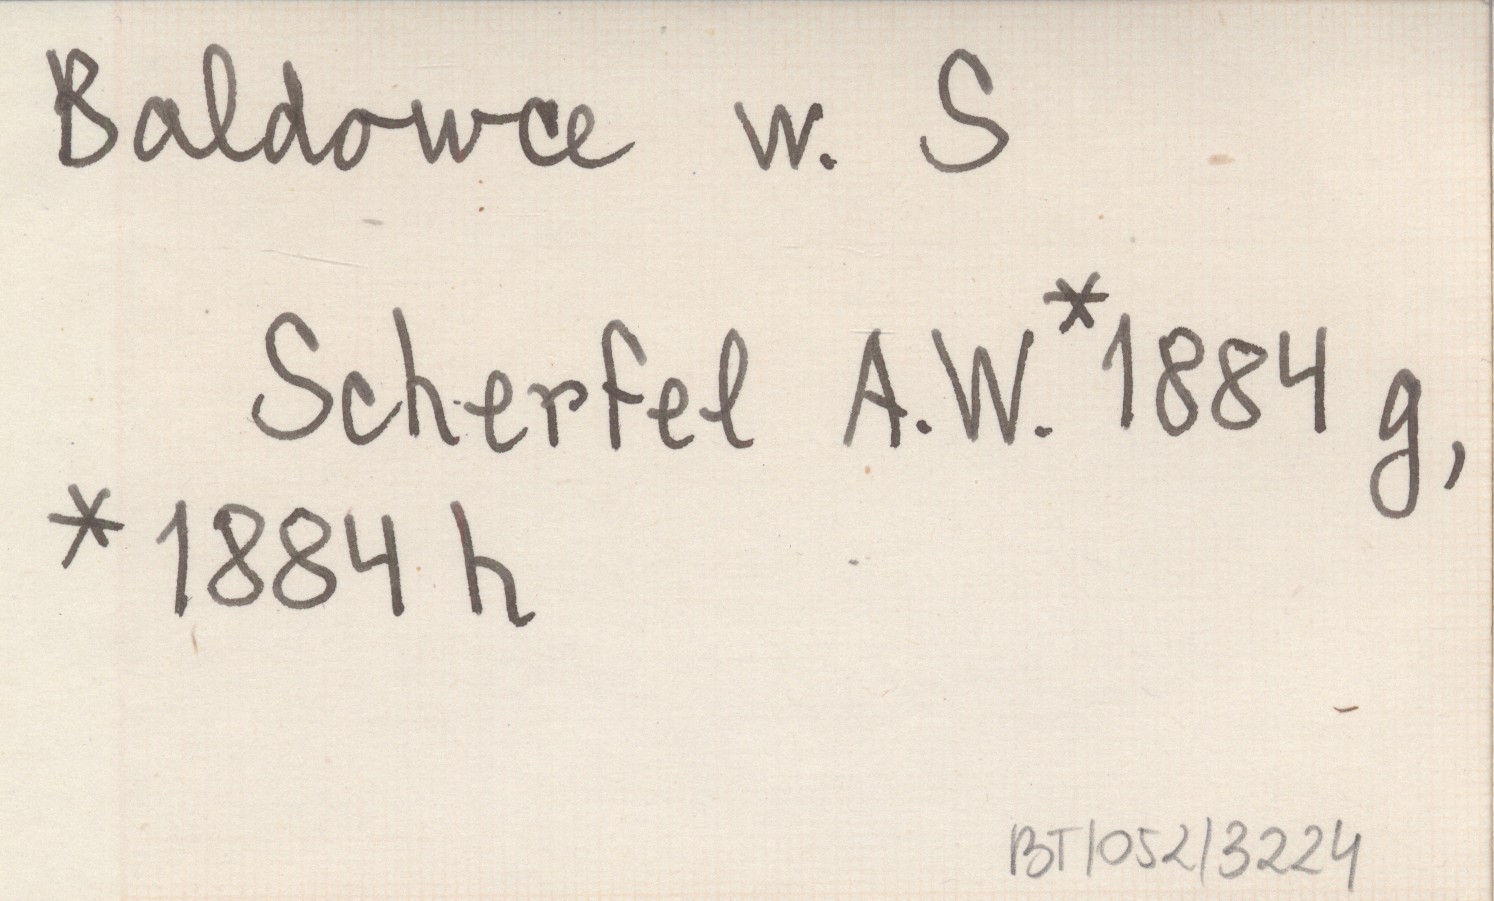 Baldowce w. S
Scherfel A.W. *1884 g,
* 1884 h
BT/052/3224